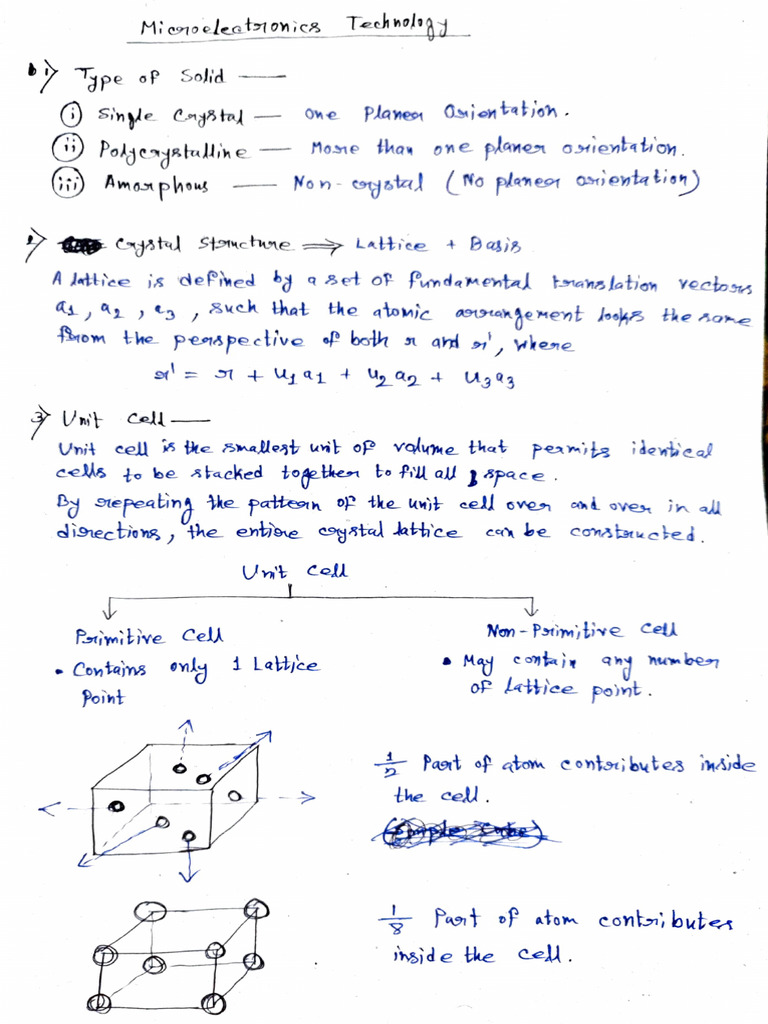 Microelectronics Technology
1) Type of Solid —
(i) Single Crystal — One Planer Orientation.
(ii) Polycrystalline — More than one planer orientation.
(iii) Amorphous — Non-crystal (No planer orientation)
2) Crystal Structure ⇒ Lattice + Basis
A lattice is defined by a set of fundamental translation vectors
a1, a2, a3, such that the atomic arrangement looks the same
from the perspective of both r and r', where
r' = r + u1a1 + u2a2 + u3a3
3) Unit Cell —
Unit cell is the smallest unit of volume that permits identical
cells to be stacked together to fill all space.
By repeating the pattern of the unit cell over and over in all
directions, the entire crystal lattice can be constructed.
Unit Cell
Primitive Cell
• Contains only 1 Lattice
Point
Non-Primitive Cell
• May contain any number
of lattice point.
1/2 Part of atom contributes inside
the cell.
1/8 Part of atom contributes
inside the cell.